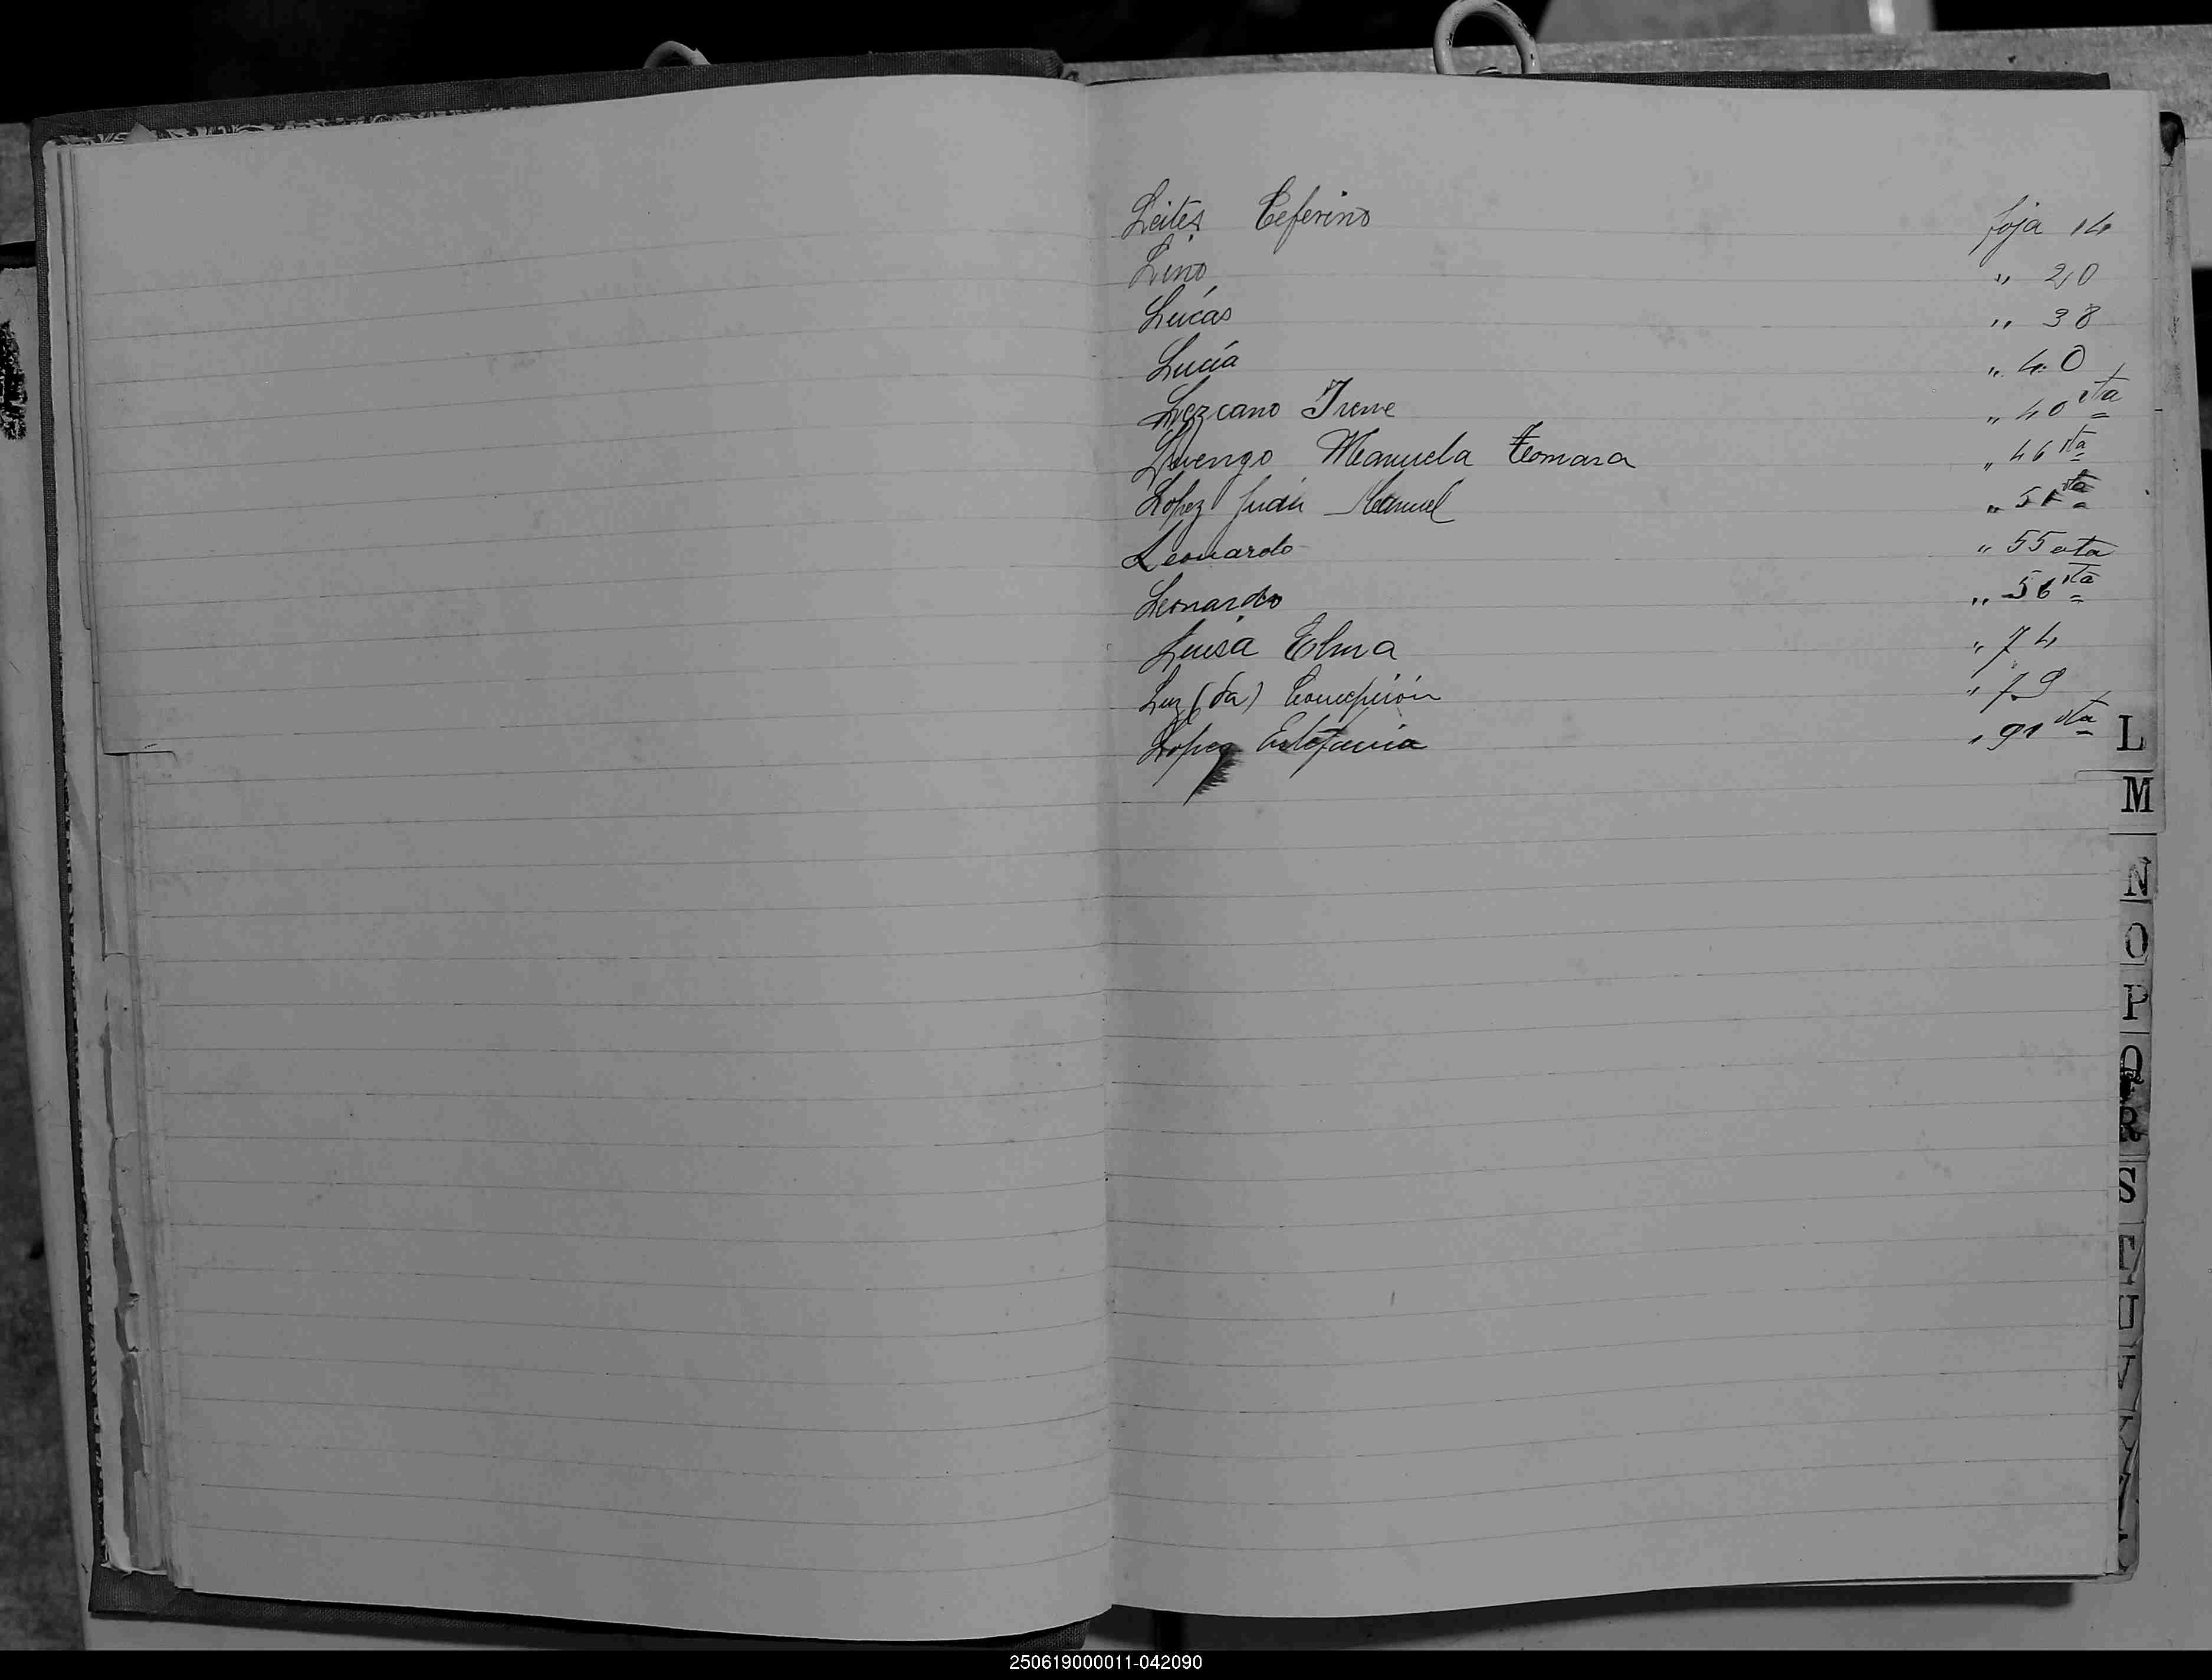 Leites Ceferino foja 14
Lino " 20
Lucas " 38
Lucía " 40
Lezcano Irene " 40 vta
Luengo Manuela Tomasa " 46 vta
Lopez Juan Manuel " 51 vta
Leonardo " 55 vta
Leonardo " 56 vta
Luisa Elma " 74
Luz (da) Concepción " 79
Lopez Estefania " 91 vta
L
M
N
O
P
Q
R
S
T
U
V
250619000011-042090